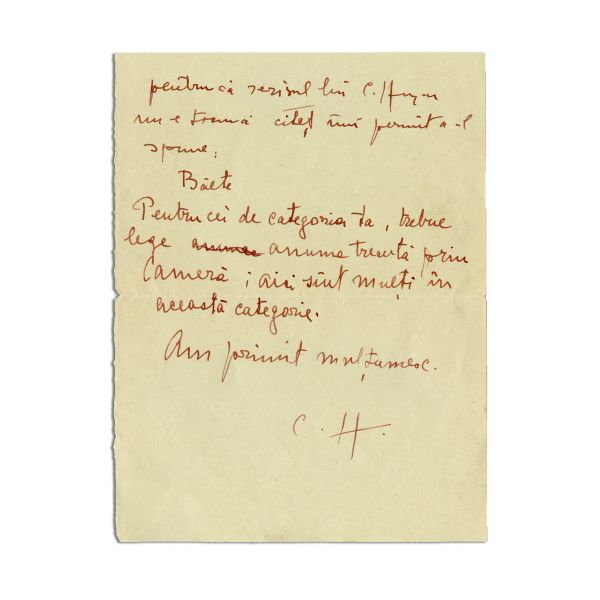 pentru că scrisul lui C. 
nu e              citeț îmi permit a-l
spune:
Băete
Pentru cei de categoria ta, trebue
lege anume anume trecută prin
Cameră; aici sînt mulți în
această categorie.
Am primit mulțumesc.
C. H.